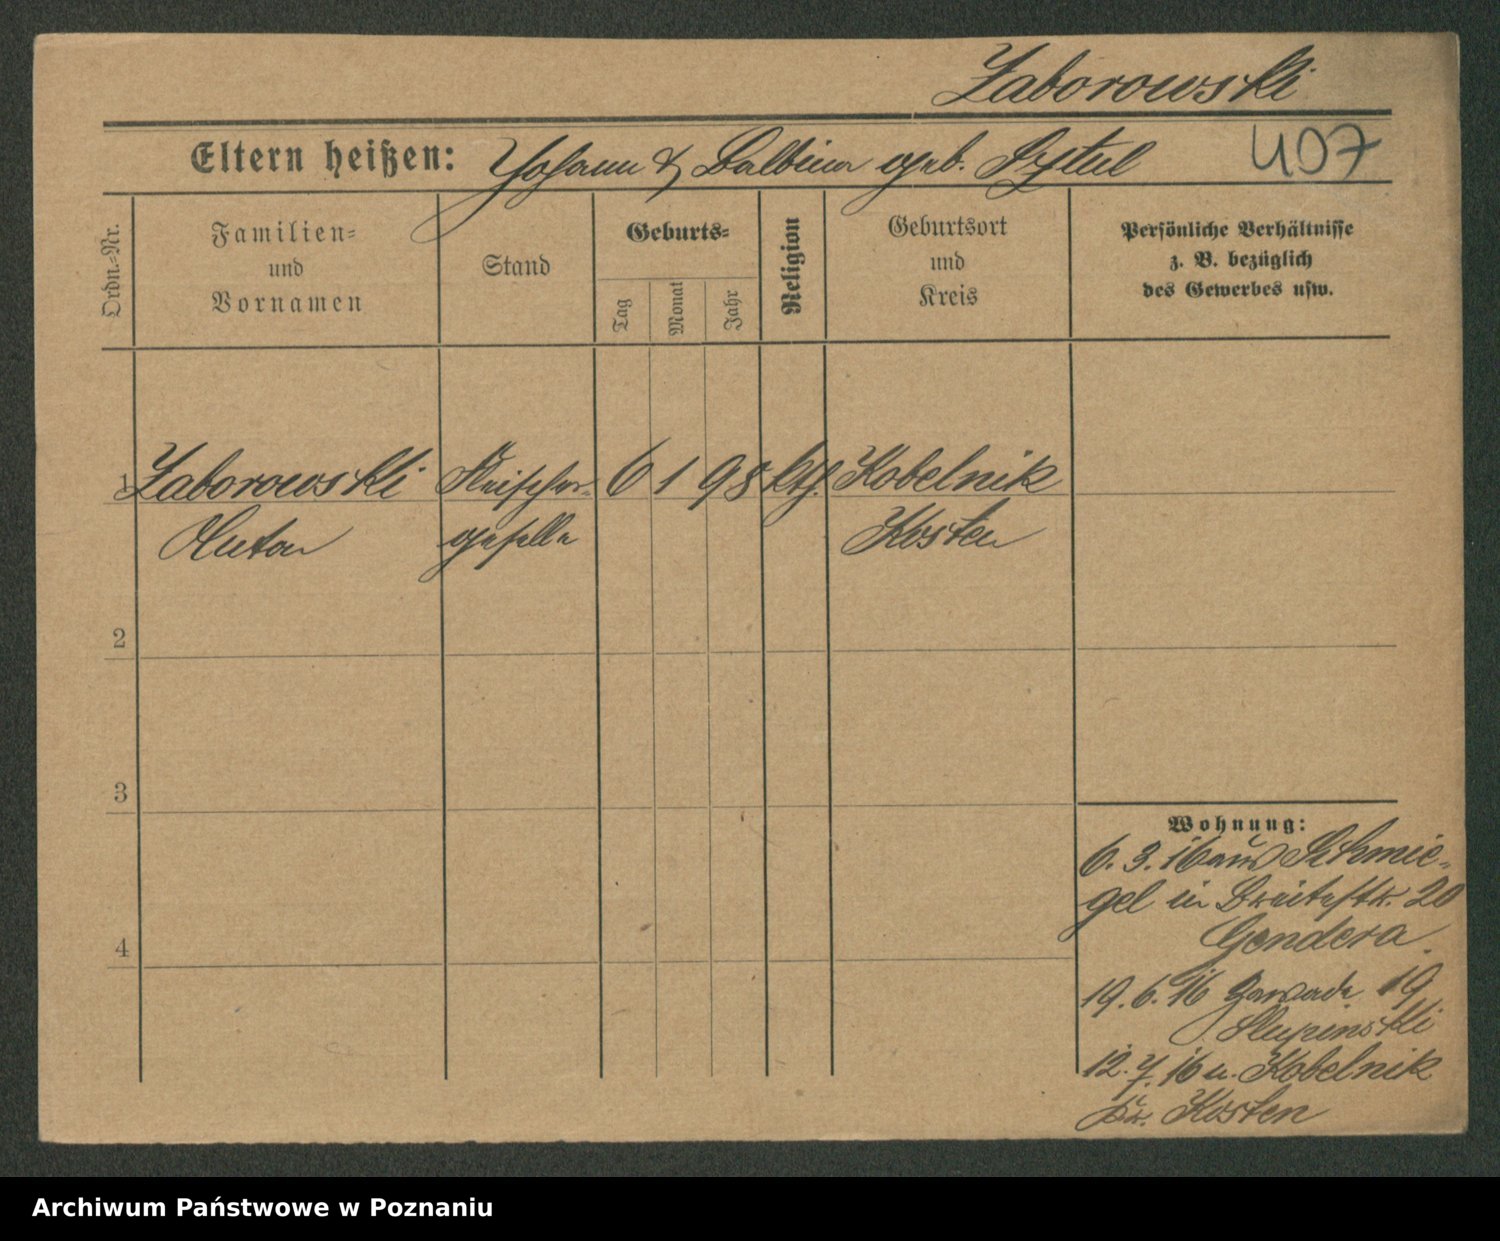 Zaborowski
407
Eltern heißen: Johann & Balbina geb. Sztul
Ordn.-Nr.
Familien-
und
Vornamen
Stand
Geburts-
Tag
Monat
Jahr
Religion
Geburtsort
und
Kreis
Persönliche Verhältnisse
z. B. bezüglich
des Gewerbes usw.
1 Zaborowski Fleischer- 6 1 98 kth. Kobelnik
Anton geselle Kosten
2
3
4
Wohnung:
6. 3. 16 aus Schmie-
gel in Breitestr. 20
Gendera
19. 6. 16 Zawade 19
Slupinski
12. 7. 16 n. Kobelnik
Kr. Kosten
Archiwum Państwowe w Poznaniu